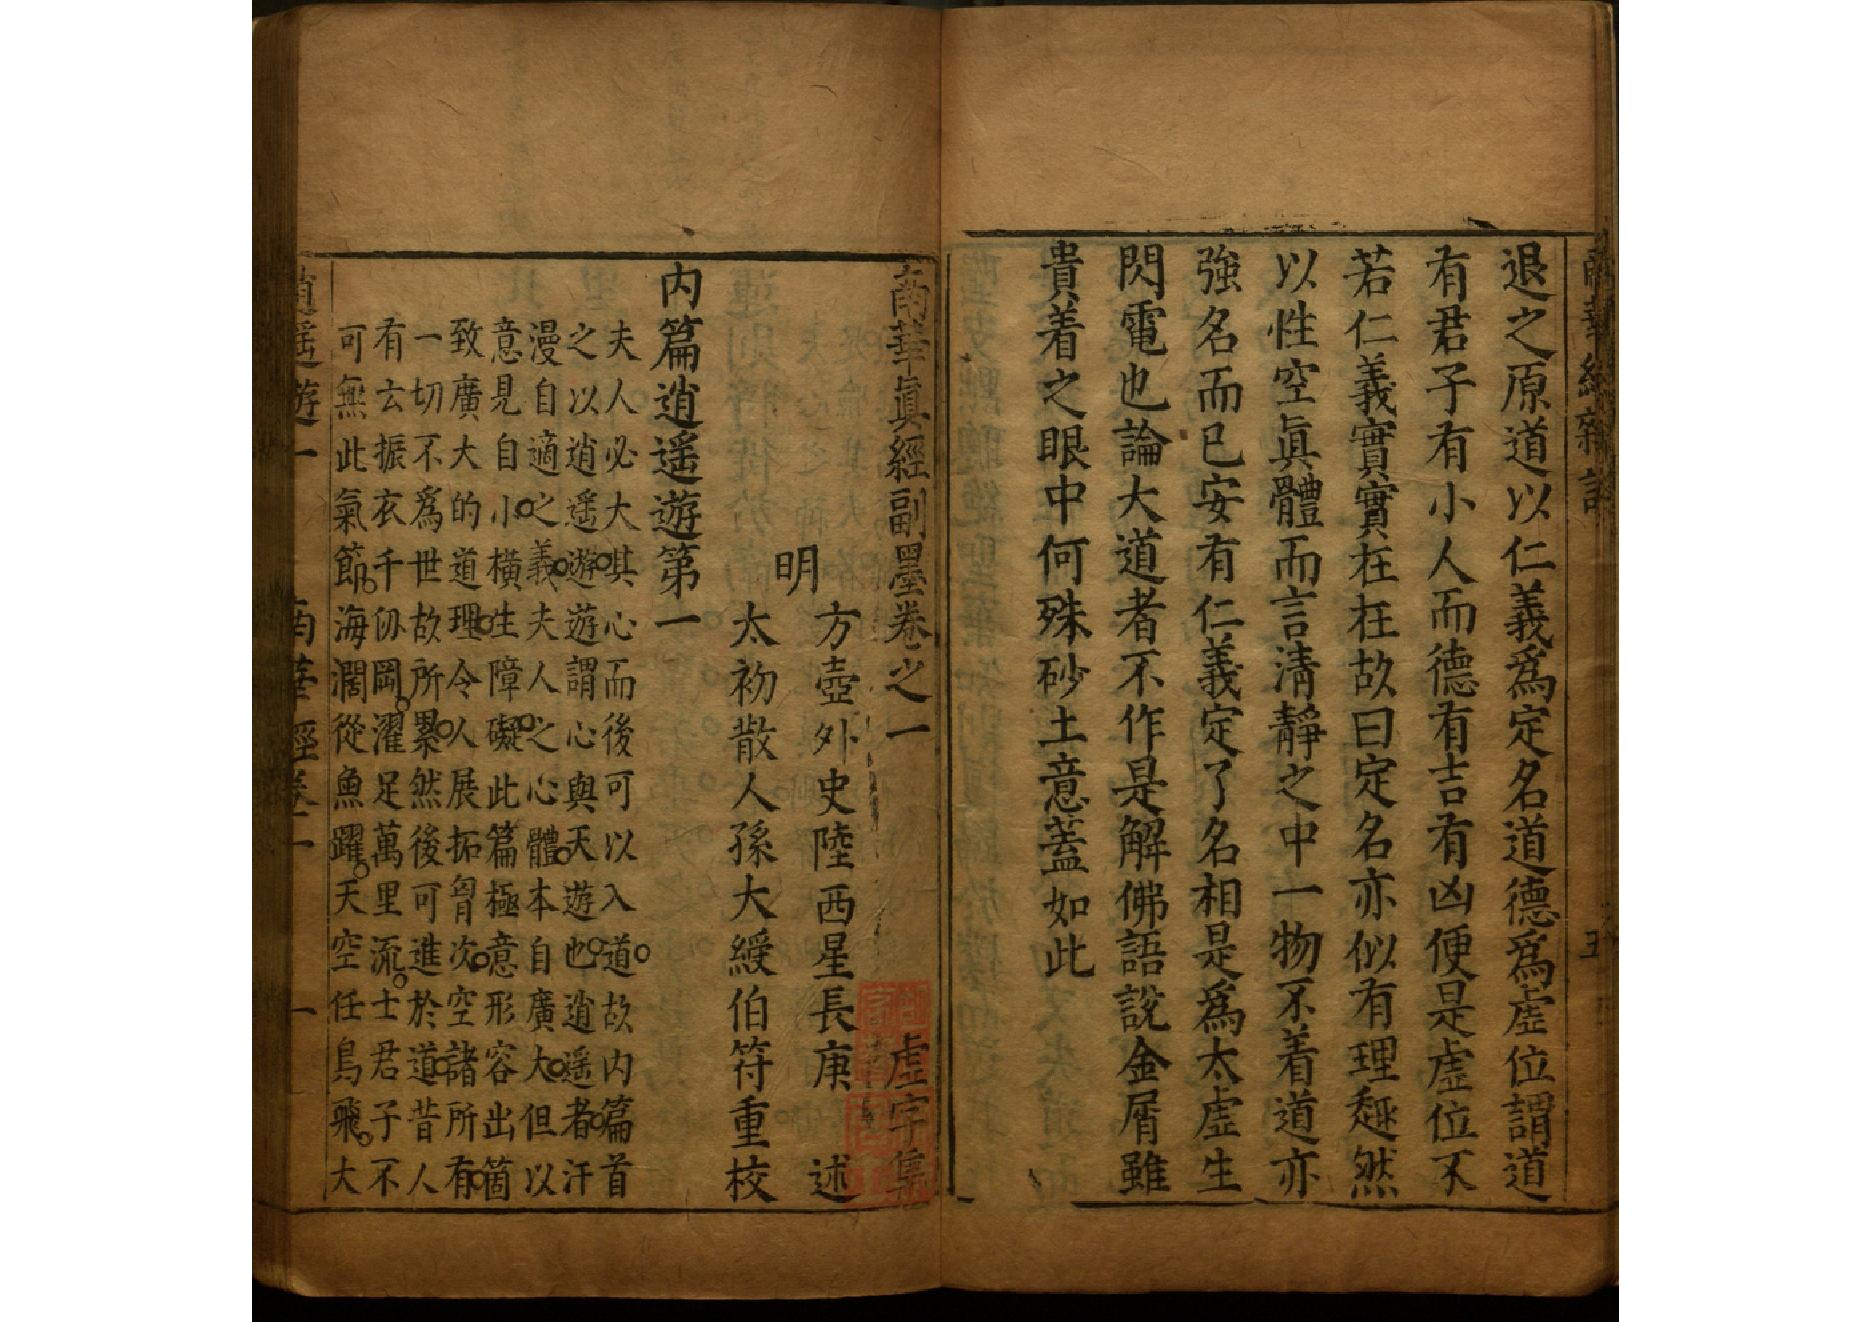 南華經雜記
五
退之原道以仁義爲定名道德爲虛位謂道
有君子有小人而德有吉有凶便是虛位不
若仁義實實在在故曰定名亦似有理趣然
以性空眞體而言淸靜之中一物不着道亦
強名而已安有仁義定了名相是爲太虛生
閃電也論大道者不作是解佛語說金屑雖
貴着之眼中何殊砂土意蓋如此
南華眞經副墨卷之一 虛字集
方壺外史陸西星長庚 述
明
太初散人孫大綬伯符重校
内篇逍遙遊第一
夫人必大其心而後可以入道故内篇首
之以逍遙遊遊謂心與天遊也逍遙者汗
漫自適之義夫人之心體本自廣大但以
意見自小橫生障礙此篇極意形容出箇
致廣大的道理令人展拓胷次空諸所有
一切不爲世故所累然後可進於道昔人
有云振衣千仞岡濯足萬里流士君子不
可無此氣節海濶從魚躍天空任鳥飛大
逍遙遊一
南華經卷一
一